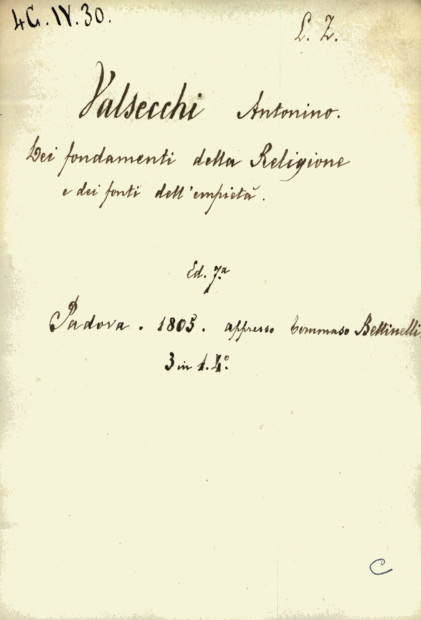 4G.IV.30.
L. Z.
Valsecchi Antonino.
Dei fondamenti della Religione
e dei fonti dell'empietà.
Ed. 7.a
Padova. 1805. appresso Tommaso Bettinelli.
3 in 1. 4.o
C